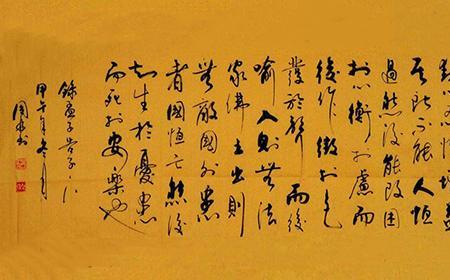 其所不能人恒
過然後能改困
於心衡於慮而
後作徵於色
發於聲而後
喻入則無法
家拂士出則
無敵國外患
者國恒亡然後
知生於憂患
而死於安樂也
錄孟子告子
甲午年冬月